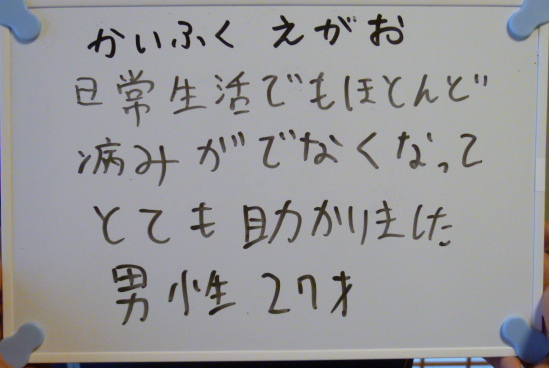 かいふく えがお
日常生活でもほとんど
病みがでなくなって
とても助かりました
男性 27才